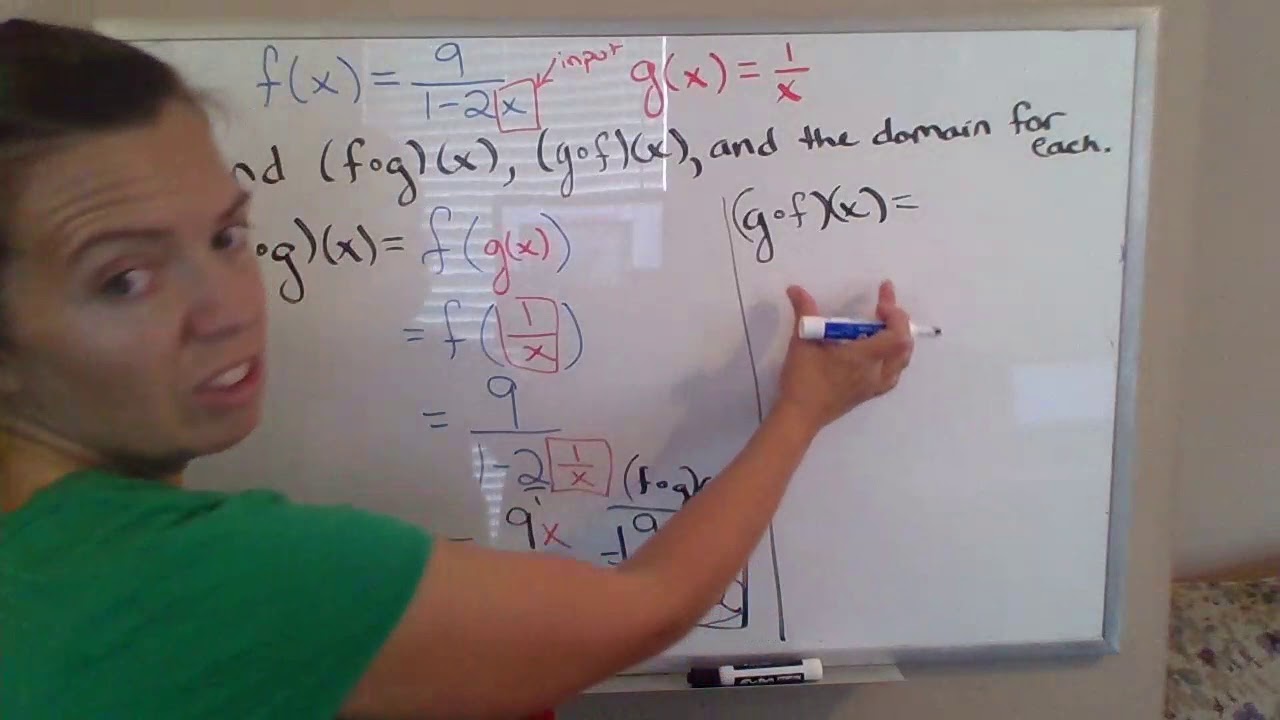 f(x) = 9/(1-2x) input g(x) = 1/x
nd (f∘g)(x), (g∘f)(x), and the domain for each.
∘g)(x) = f(g(x))
= f(1/x)
= 9/(1-2 1/x)
9x
(f∘g)
9
(g∘f)(x) =